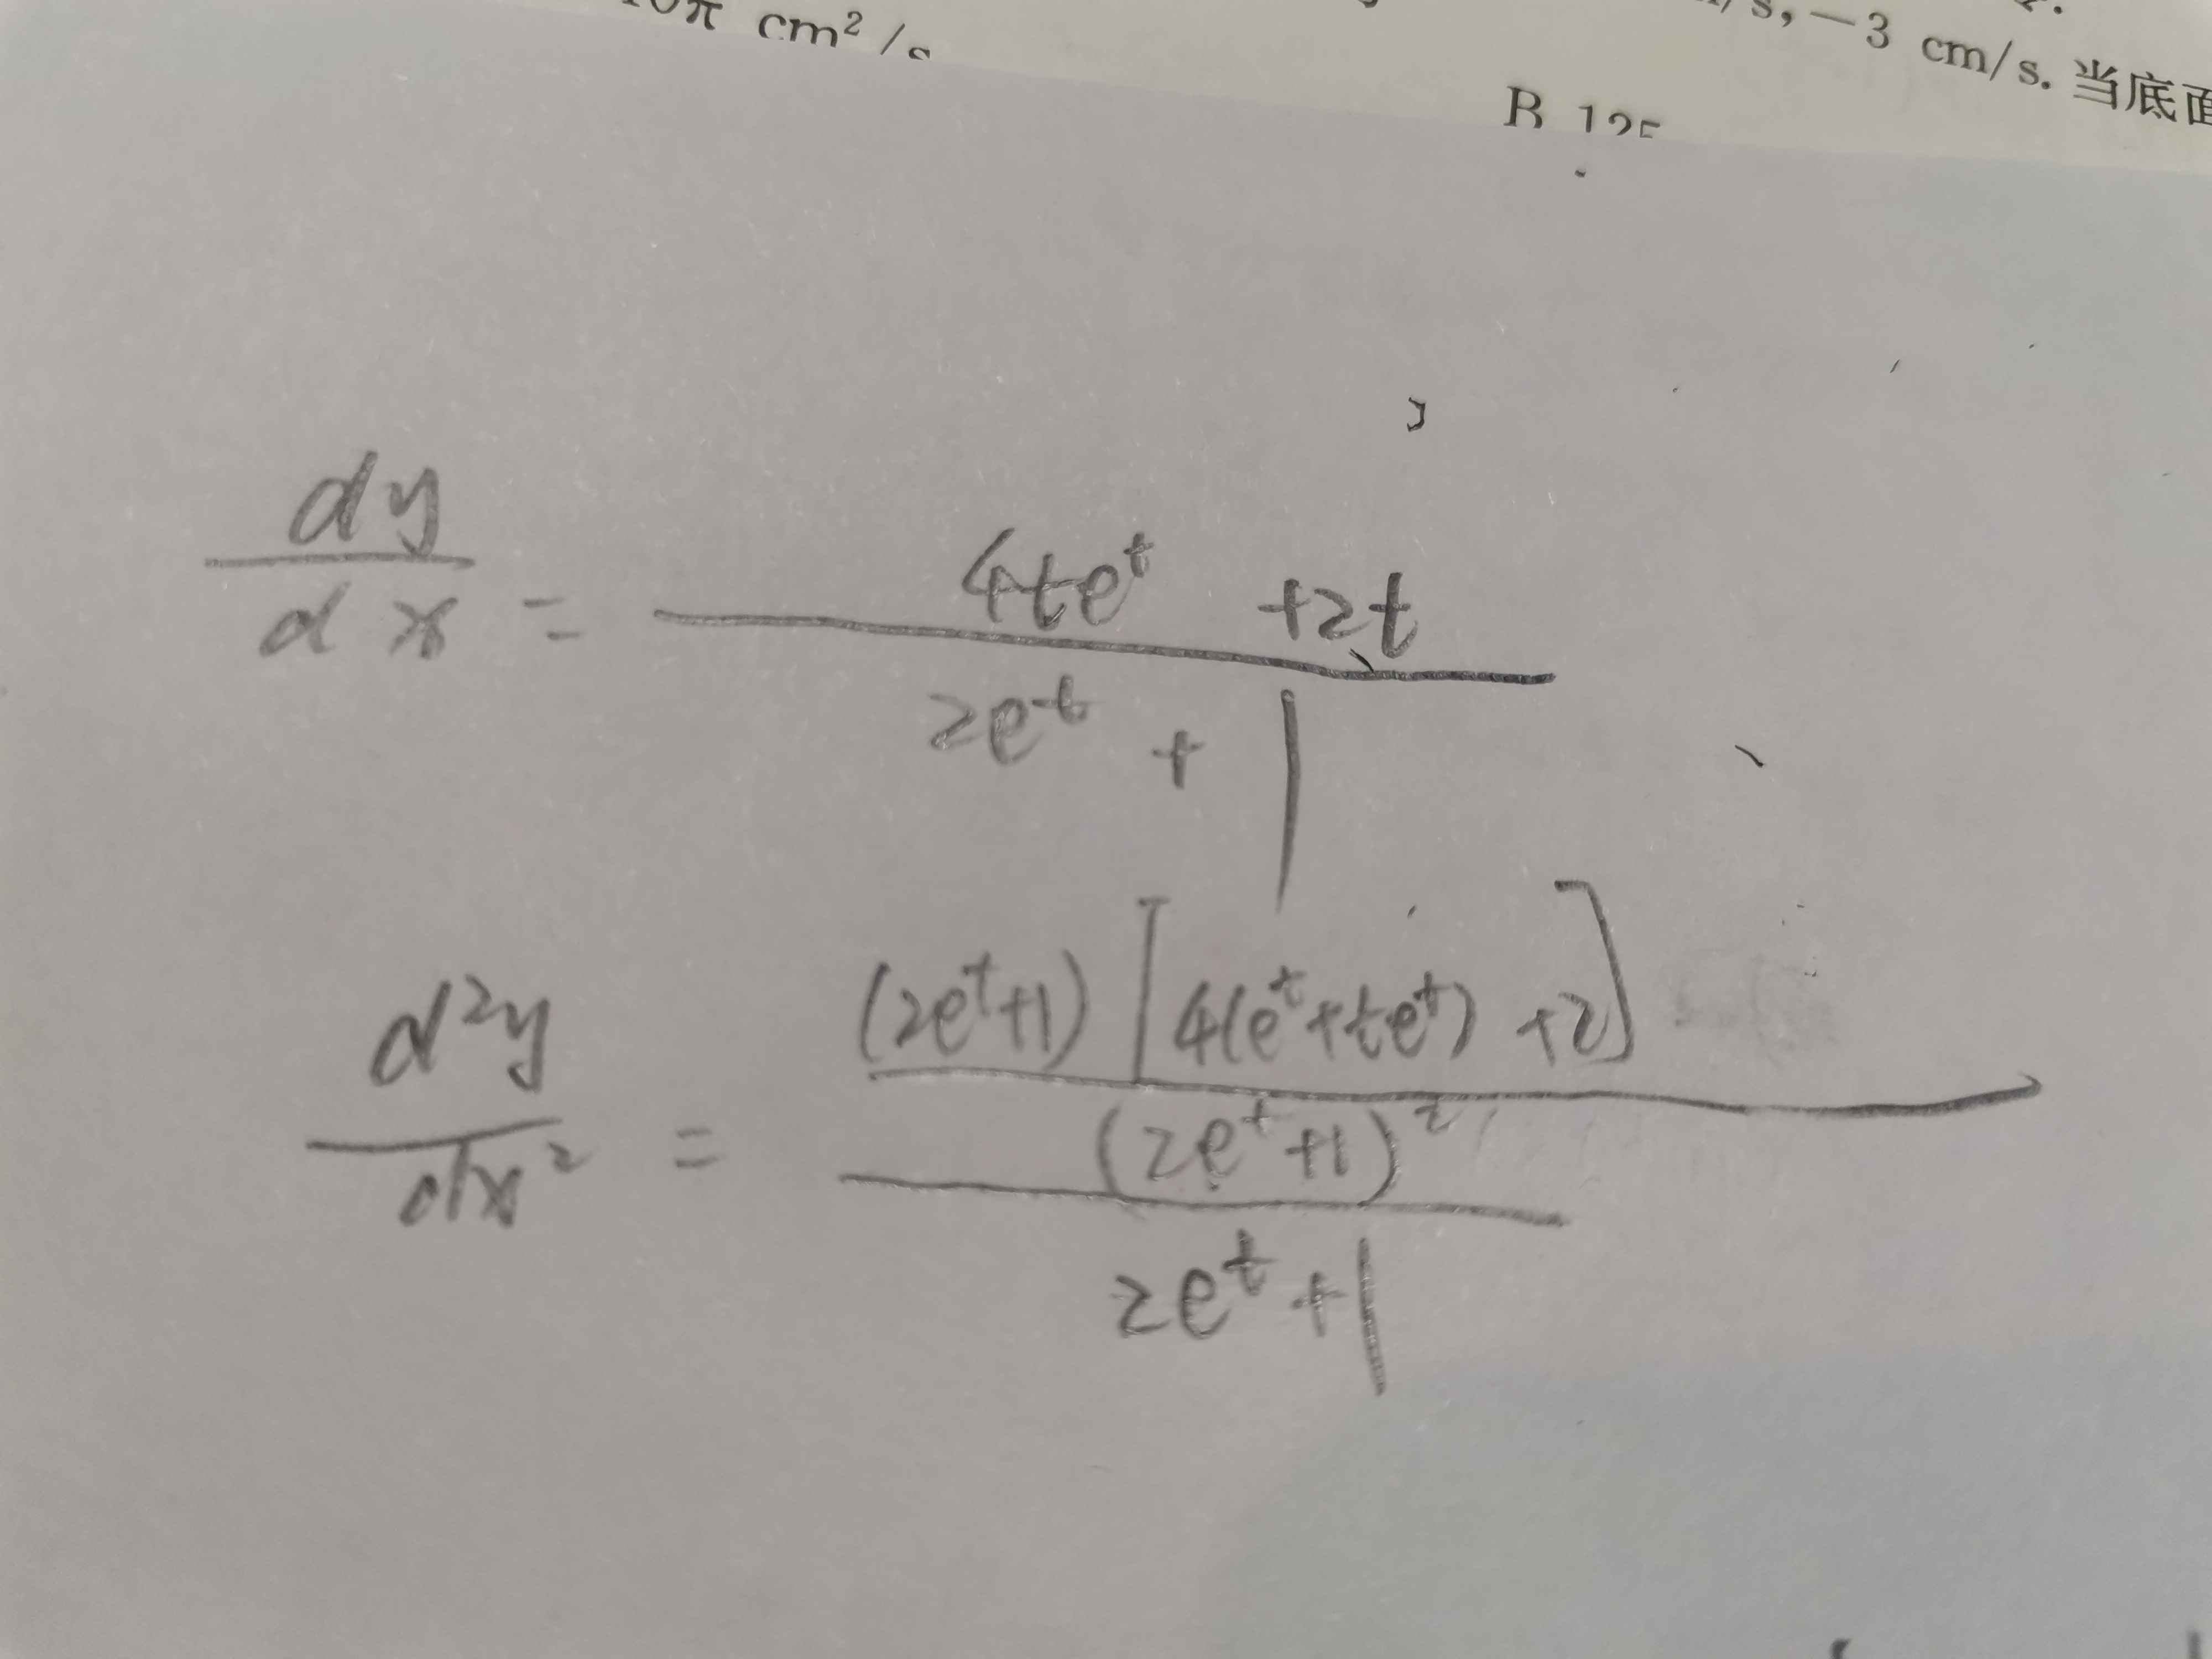 10π cm²/s
/s, −3 cm/s. 当底面
B 125
dy/dx = (4te^t +2t)/(2e^t + 1)
d²y/dx² = ((2e^t+1)[4(e^t+te^t) +2]/(2e^t+1)²)/(2e^t+1)